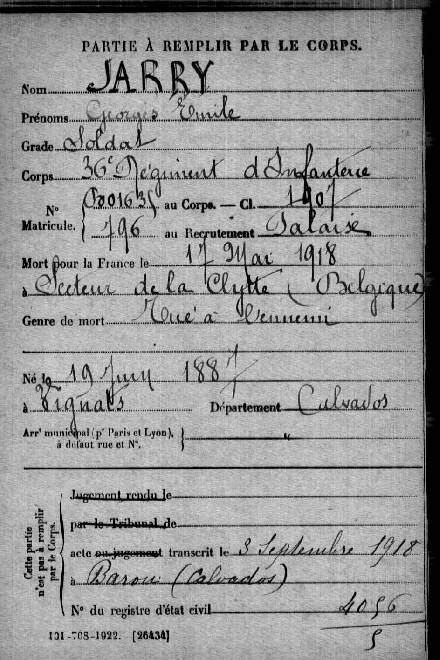 PARTIE À REMPLIR PAR LE CORPS.
Nom JARRY
Prénoms Georges Emile
Grade Soldat
Corps 36e Régiment d'Infanterie
N° Matricule. { 001631 au Corps. — Cl. 1907
796 au Recrutement Falaise
Mort pour la France le 17 Mai 1918
à Secteur de la Clytte (Belgique)
Genre de mort Tué à l'ennemi
Né le 19 Juin 1887
à Vignats Département Calvados
Arrt municipal (pr Paris et Lyon), à défaut rue et N°. } "
Cette partie n'est pas à remplir par le Corps.
Jugement rendu le
par le Tribunal de
acte ou jugement transcrit le 3 Septembre 1918
à Barou (Calvados)
N° du registre d'état civil
4056
5
101-708-1922. [26434]